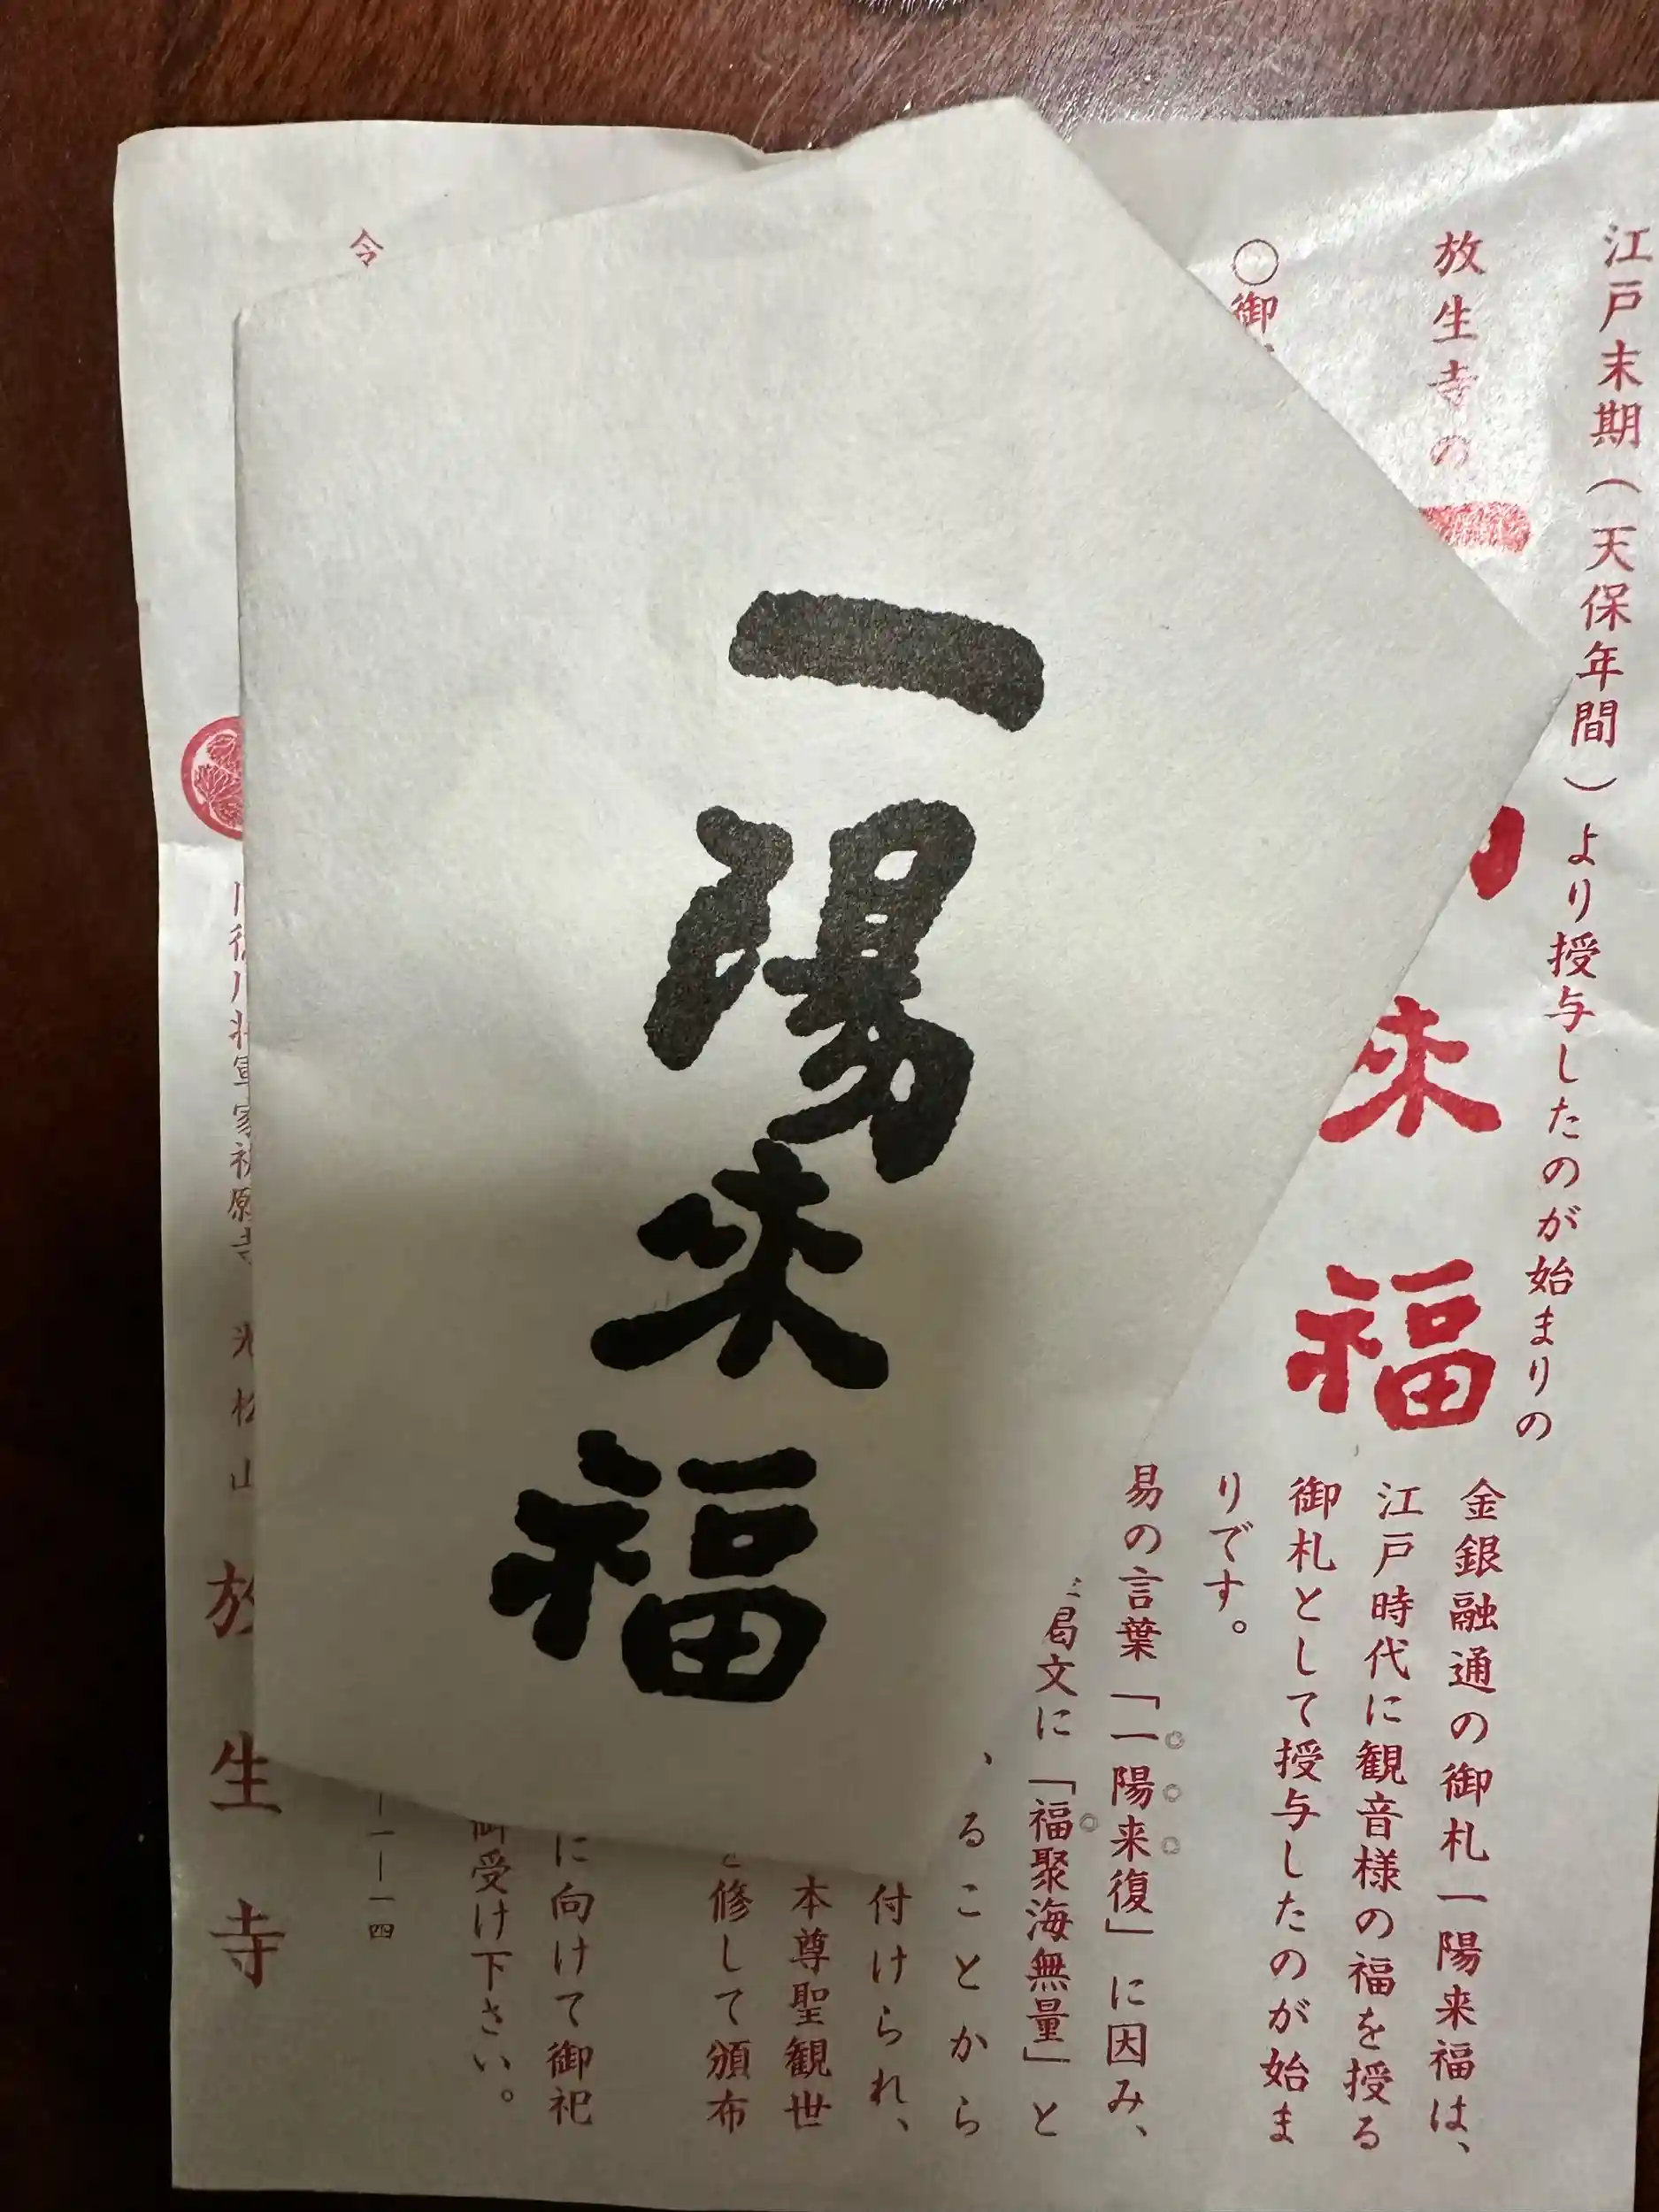 一陽来福
江戸末期(天保年間)より授与したのが始まりの
放生寺の
来福
○御
金銀融通の御札一陽来福は、
江戸時代に観音様の福を授る
御札として授与したのが始ま
りです。
易の言葉「一陽来復」に因み、
偈文に「福聚海無量」と
、ることから
付けられ、
本尊聖観世
修して頒布
に向けて御祀
御受け下さい。
令
一一一一四
川将軍家祈願寺 光松山 放生寺